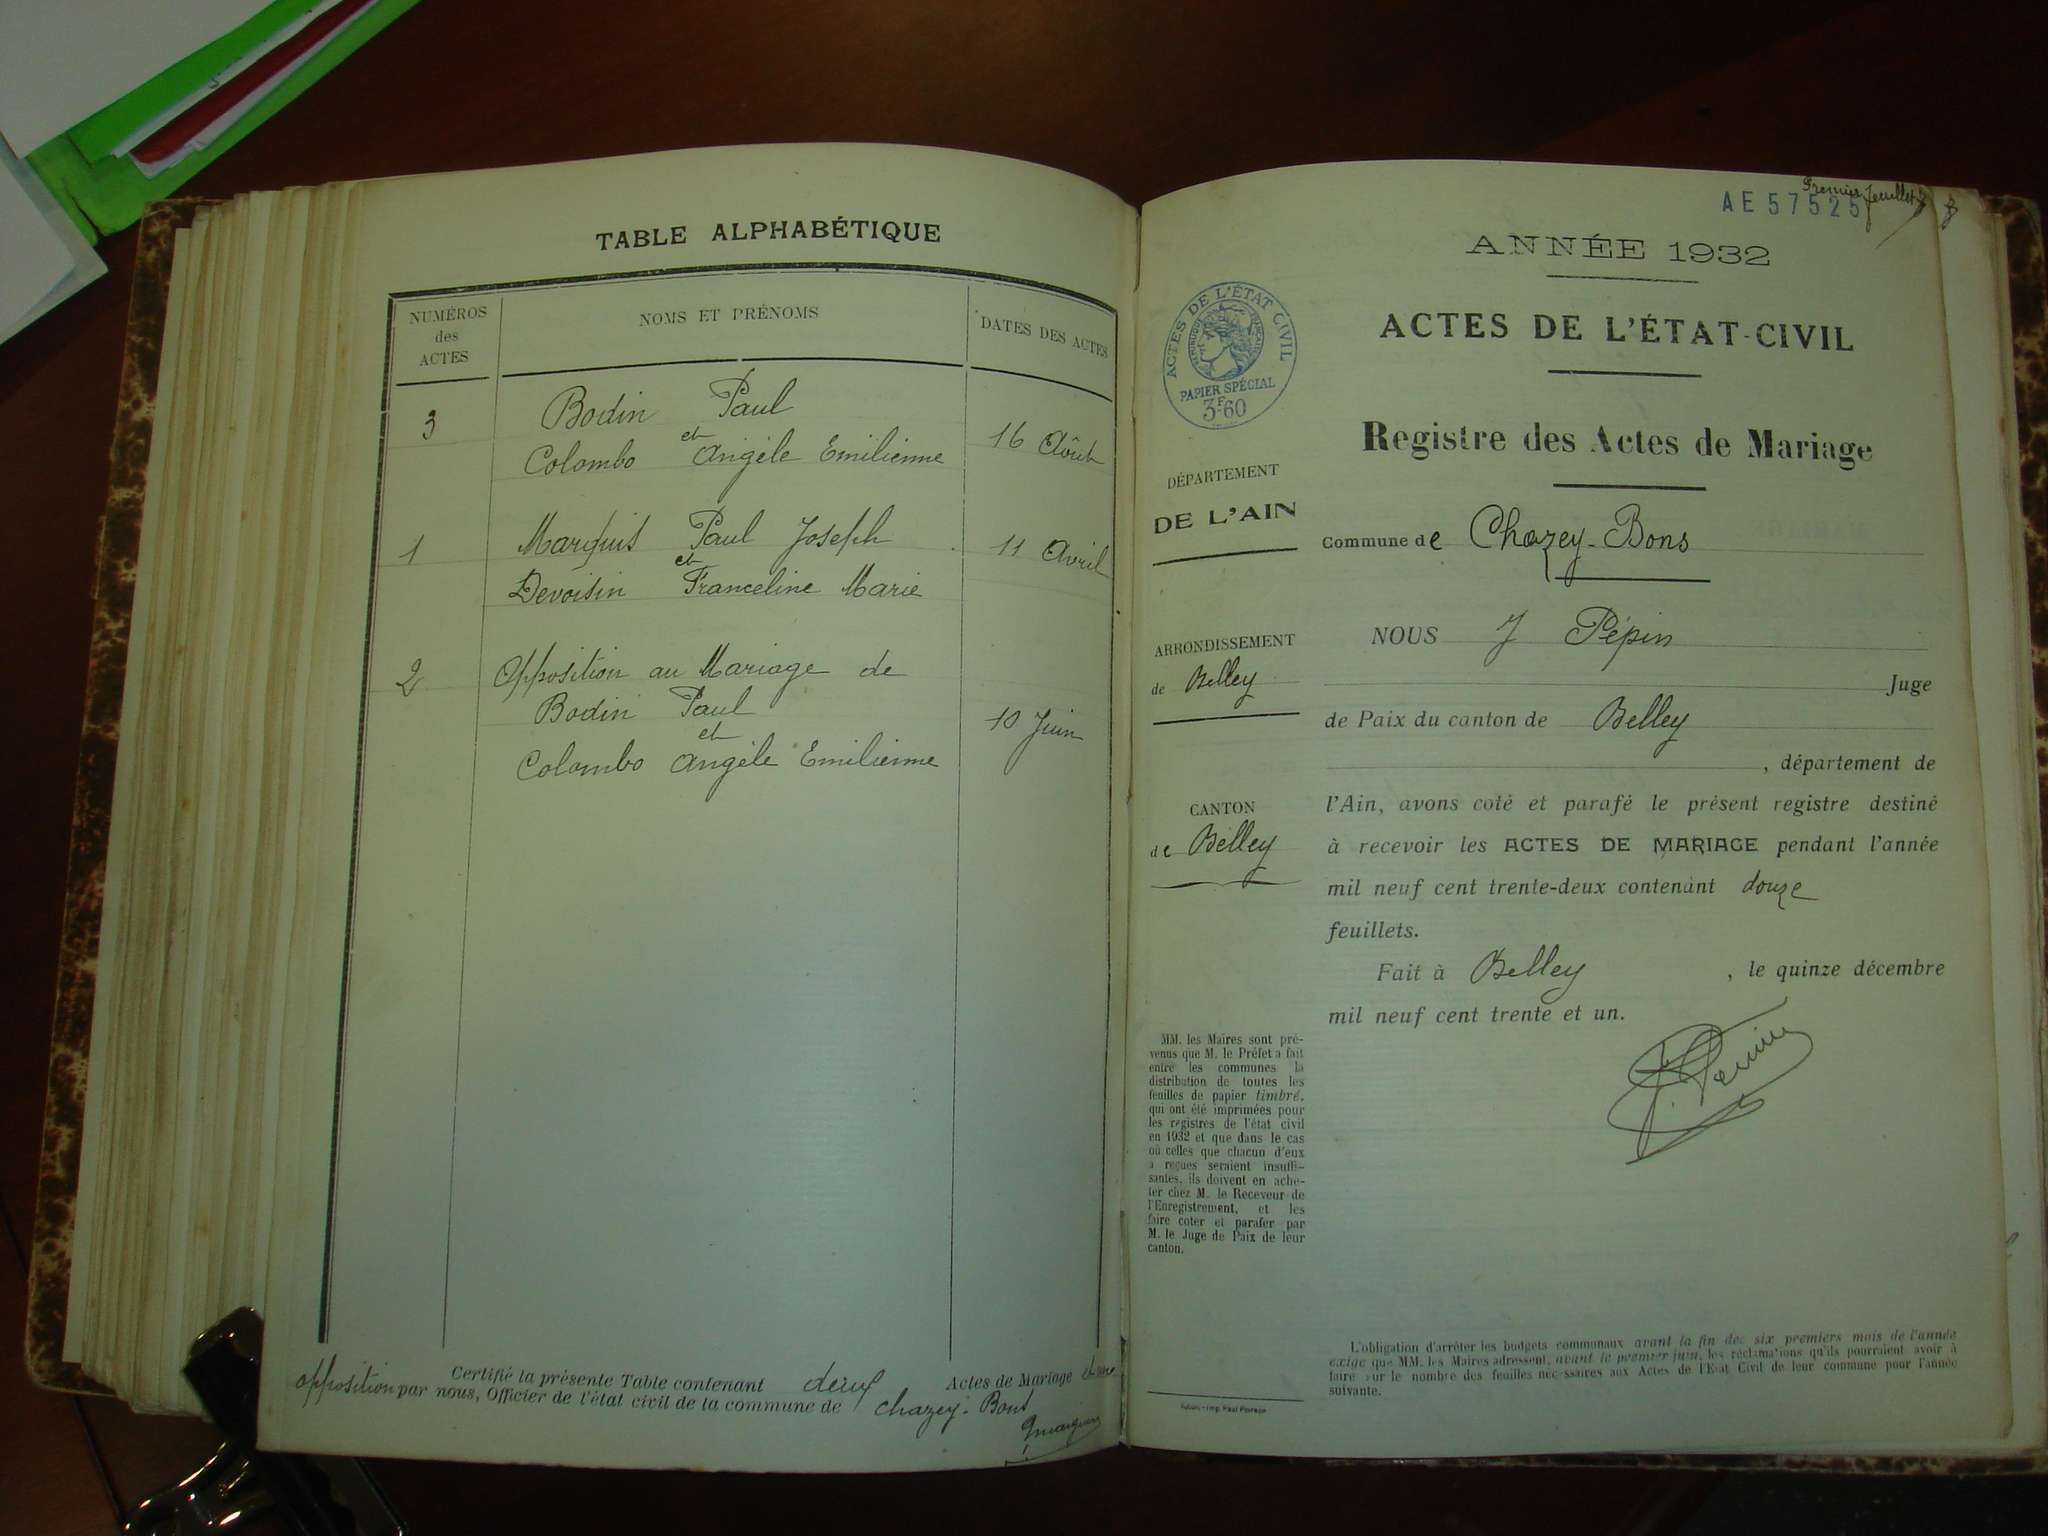 TABLE ALPHABÉTIQUE
NUMÉROS
des
ACTES
NOMS ET PRÉNOMS
DATES DES ACTES
3
Bodin Paul
et
Colombo Angèle Emilienne
16 Août
1
Marquis Paul Joseph
et
Devoisin Franceline Marie
11 Avril
2
Opposition au Mariage de
Bodin Paul
et
Colombo Angèle Emilienne
10 Juin
Certifié la présente Table contenant deux Actes de Mariage
opposition par nous, Officier de l'état civil de la commune de Chazey-Bons
Premier feuillet
AE57525
ANNÉE 1932
ACTES DE L'ÉTAT CIVIL
RÉPUBLIQUE FRANÇAISE
PAPIER SPÉCIAL
3F60
ACTES DE L'ÉTAT-CIVIL
Registre des Actes de Mariage
DÉPARTEMENT
DE L'AIN
Commune de Chazey-Bons
ARRONDISSEMENT
de Belley
NOUS J Pépin
Juge
de Paix du canton de Belley
, département de
CANTON
de Belley
l'Ain, avons coté et parafé le présent registre destiné
à recevoir les ACTES DE MARIAGE pendant l'année
mil neuf cent trente-deux contenant douze
feuillets.
Fait à Belley , le quinze décembre
mil neuf cent trente et un.
J. Pépin
MM. les Maires sont pré-
venus que M. le Préfet a fait
entre les communes la
distribution de toutes les
feuilles de papier timbré,
qui ont été imprimées pour
les registres de l'état civil
en 1932 et que dans le cas
où celles que chacun d'eux
a reçues seraient insuffi-
santes, ils doivent en ache-
ter chez M. le Receveur de
l'Enregistrement, et les
faire coter et parafer par
M. le Juge de Paix de leur
canton.
L'obligation d'arrêter les budgets communaux avant la fin des six premiers mois de l'année
exige que MM. les Maires adressent, avant le premier juin, les réclamations qu'ils pourraient avoir à
faire sur le nombre des feuilles nécessaires aux Actes de l'Etat Civil de leur commune pour l'année
suivante.